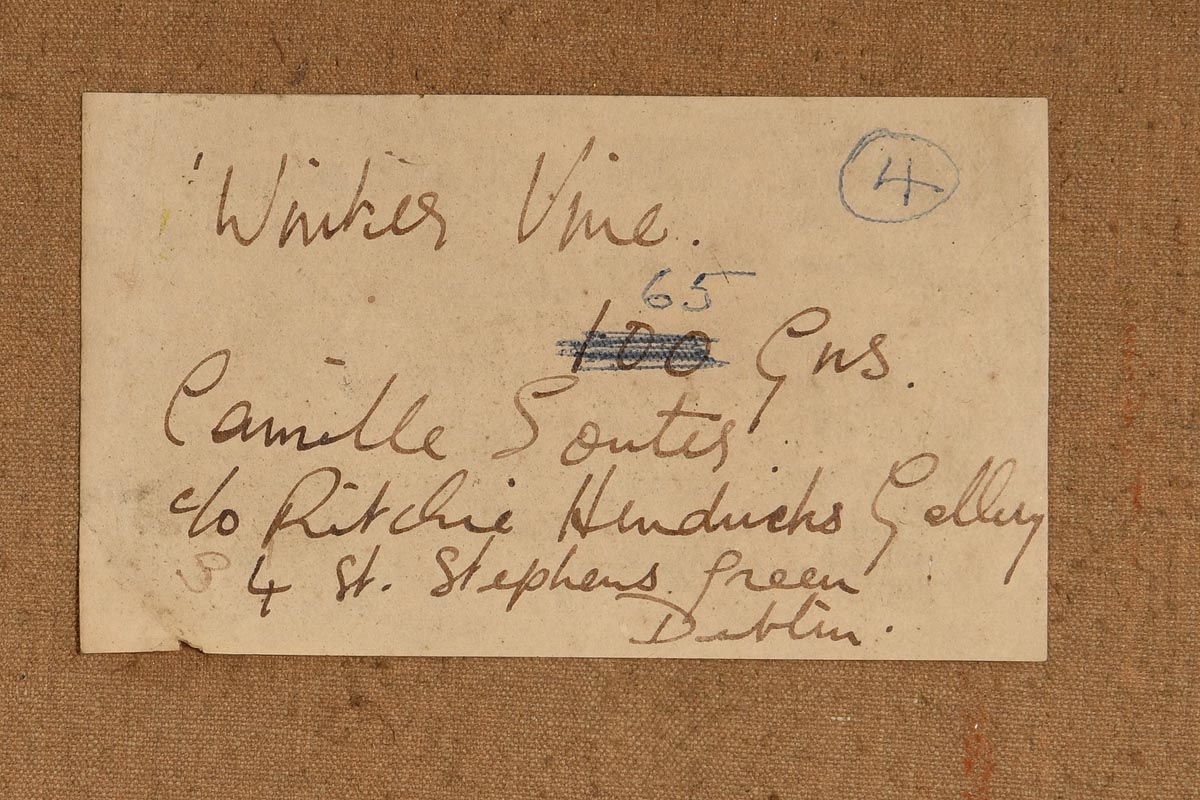 'Winter Vine.
4
65
100 Gns.
Camille Souter
c/o Ritchie Hendricks Gallery
4 St. Stephens Green
Dublin.